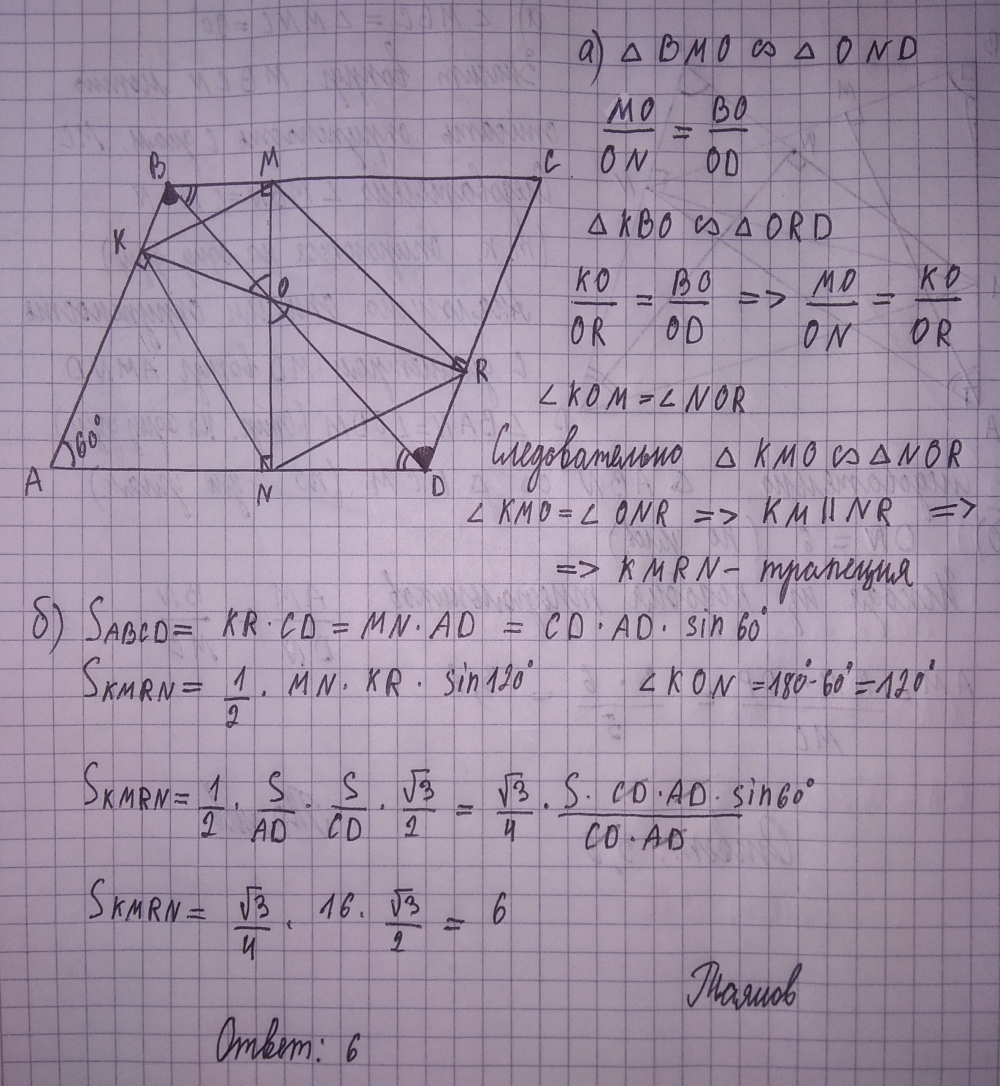 а) △ BMO ∽ △ OND
MO/ON = BO/OD
△ KBO ∽ △ ORD
KO/OR = BO/OD => MO/ON = KO/OR
∠KOM = ∠NOR
Следовательно △ KMO ∽ △ NOR
∠KMO = ∠ONR => KM || NR =>
=> KMRN - трапеция
B M C
K
O
R
60°
A N D
б) S ABCD = KR · CD = MN · AD = CD · AD · sin 60°
S KMRN = 1/2 · MN · KR · sin 120° ∠KON = 180° - 60° = 120°
S KMRN = 1/2 · S/AD · S/CD · √3/2 = √3/4 · S · CD · AD · sin 60°/CD · AD
S KMRN = √3/4 · 16 · √3/2 = 6
Ответ: 6